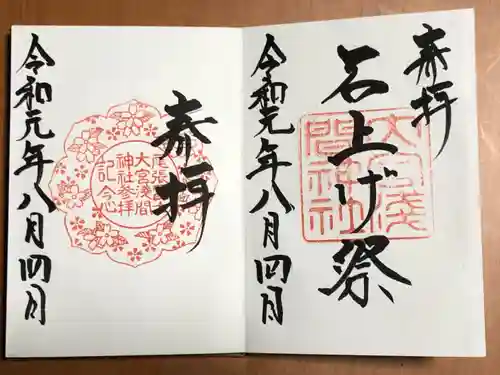 奉拝
石上げ祭
大宮浅
間神社
令和元年八月四日
奉拝
尾張冨士
大宮浅間
神社参拝
記念
令和元年八月四日